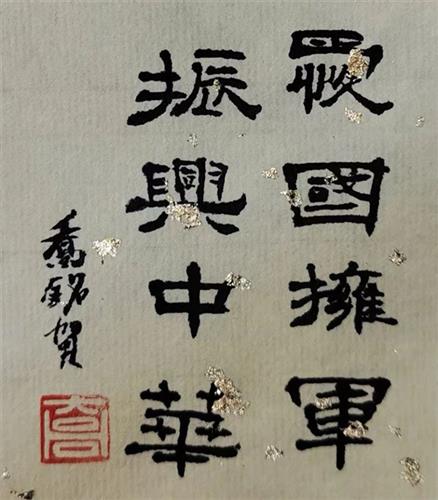 愛國擁軍
振興中華
喬銘賀
喬